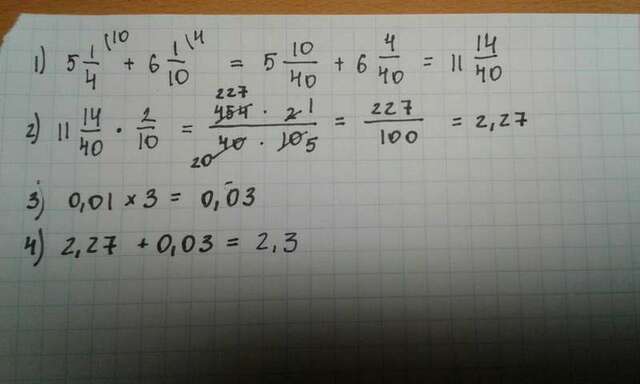 1) 5 1/4 \10 + 6 1/10 \4 = 5 10/40 + 6 4/40 = 11 14/40
2) 11 14/40 · 2/10 = 454 227 · 2 1 / 40 20 · 10 5 = 227/100 = 2,27
3) 0,01 × 3 = 0,03
4) 2,27 + 0,03 = 2,3